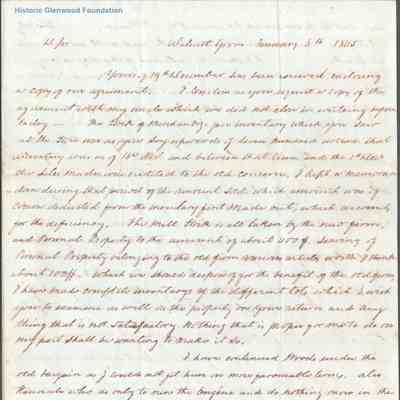 Historic Glenwood Foundation
D Sir January 5th 1845
Yours of 19th December has been received enclosing
a copy of our agreement. I enclose as you request a copy of the
agreement with my uncle which we did not close in writing before
today. The Stock of Merchandize per inventory which you saw
at the time was upwards of seven hundred which that
inventory was of 16th Nov and between that time and the 1st
the Sales Made were credited to the old concern, I kept a Memoran
dum during that period of the amount Sold which amount was of
course deducted from the inventory first Made out, which accounts
for the deficiency. The Mill Stock is all taken by the new firm,
and Personal Property to the amount of about leaving of
Personal Property belonging to the old firm various articles worth I think
about which we should dispose of for the benefit of the old firm,
I have made complete inventorys of the different lots which I wish
you to examine as well as the property on your return and any
thing that is not satisfactory. Nothing that is proper for me to do on
my part shall be wanting to make it so.
I have continued Woods under the
old bargain as I could not get him on more favourable terms. also
who is only to run the Engine and do nothing more in the